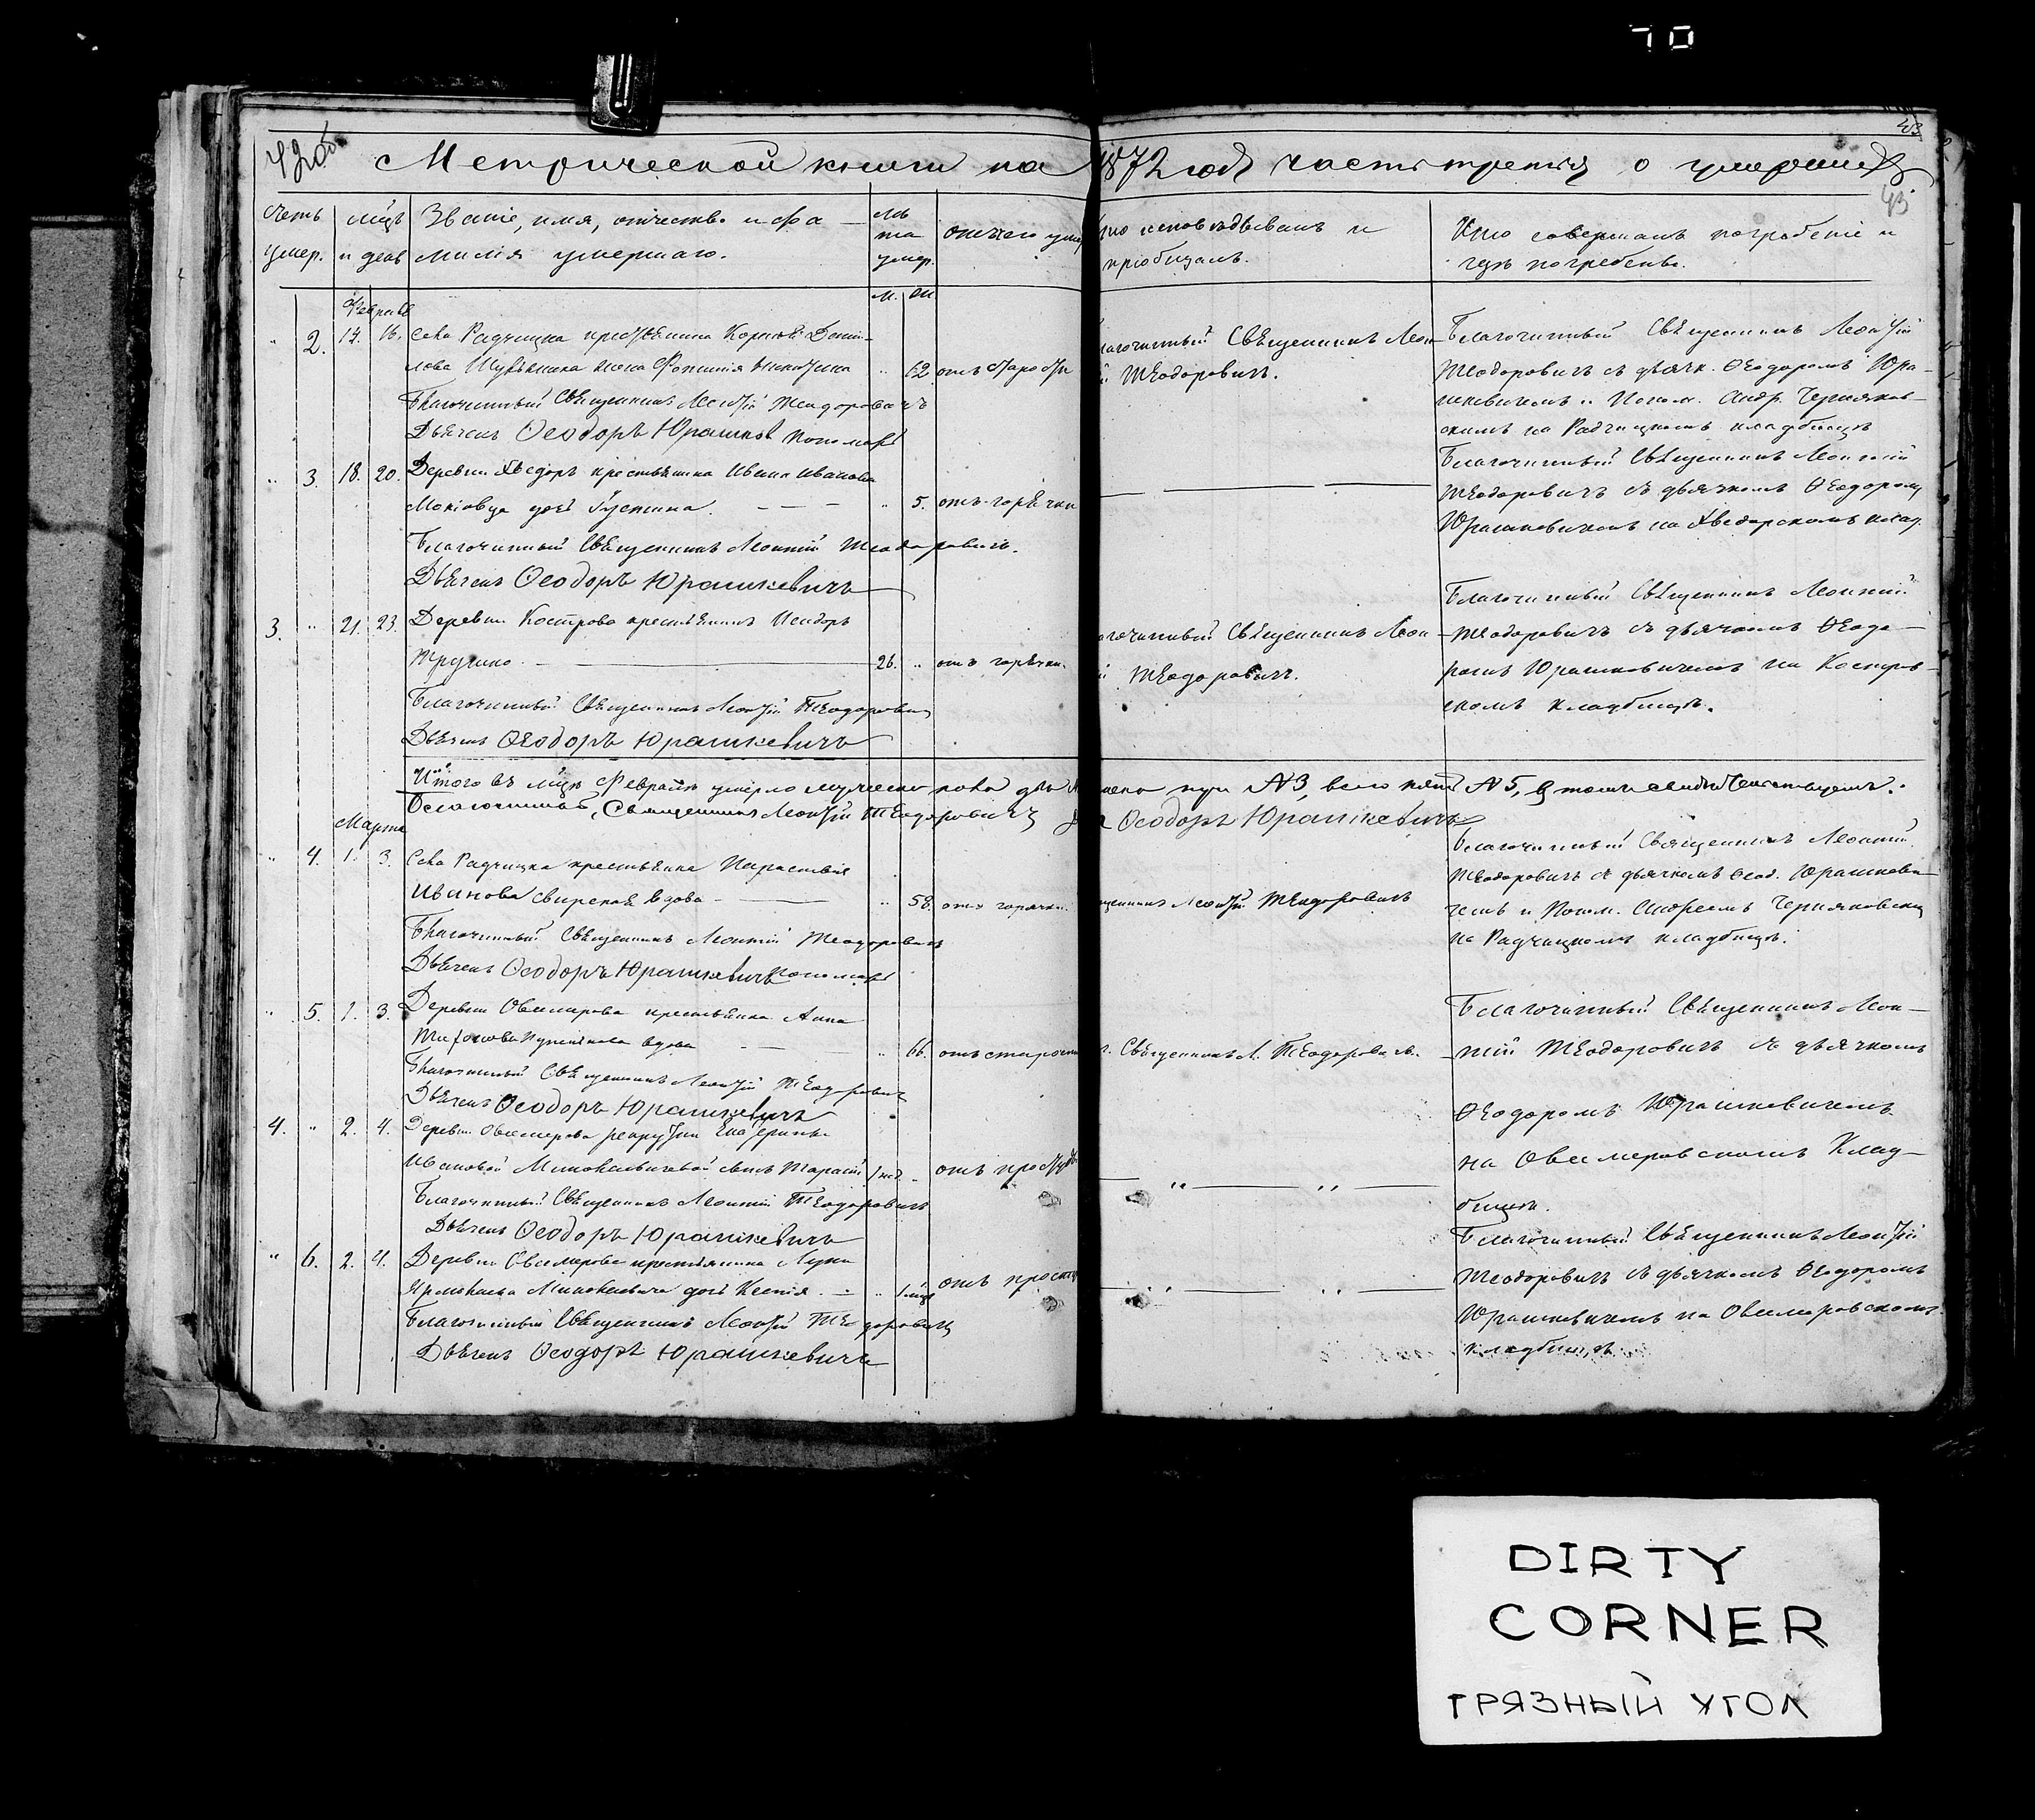 70
43
42 об
Метрической книги на 1872 годъ часть третья о умершихъ
43
Счетъ умер.
мцъ и день
Званіе, имя, отчество и фамилія умершаго.
лѣта умер.
отъ чего умер
исповѣдывалъ и пріобщалъ.
Кто совершалъ погребеніе и гдѣ погребены.
м.
Февраль
" 2. 14. 16. Села Радчицка крестьянина Корнія Дани-
лова жена " 62 отъ старости
Благочинный Священникъ Леонтій Теодоровичъ
Дьячекъ Ѳеодоръ Юрашкев Пономарь
Благочинный Священникъ Леон-
й Теодоровичъ.
Благочинный Священникъ Леонтій
Теодоровичъ съ дьячк. Ѳеодоромъ Юра-
шкевичемъ и Поном. Андр. Черняков-
скимъ на Радчицкомъ кладбищѣ
" 3. 18. 20. Деревни Хведоръ крестьянина Ивана Иванова
дочь Густина. " 5. отъ горячки
Благочинный Священникъ Леонтій Теодоровичъ.
Дьячекъ Ѳеодоръ Юрашкевичъ
Благочинный Священникъ Леонтій
Теодоровичъ съ дьячкомъ Ѳеодоромъ
Юрашкевичемъ на Хведорскомъ клад.
3. " 21. 23. Деревни Кострова крестьянинъ Исидоръ
26. " отъ горячки.
Благочинный Священникъ Леонтій Теодоровичъ
Дьячекъ Ѳеодоръ Юрашкевичъ
агочинный Священникъ Леон-
й Теодоровичъ.
Благочинный Священникъ Леонтій
Теодоровичъ съ дьячкомъ Ѳеодо-
ромъ Юрашкевичемъ на Костров-
скомъ кладбищѣ.
Итого въ мцѣ Февралѣ умерло мужеска пола два женска три №3, всего пять №5, въ томъ свидѣтельствуемъ:
Благочинный, Священникъ Леонтій Теодоровичъ Ѳеодоръ Юрашкевичъ
Мартъ
" 4. 1. 3. Села Радчицка крестьянка Параскевія
Иванова вдова " 58. отъ горячки.
Благочинный Священникъ Леонтій Теодоровичъ
Дьячекъ Ѳеодоръ Юрашкевичъ Пономарь
щенникъ Леонтій Теодоровичъ
Благочинный Священникъ Леонтій
Теодоровичъ съ дьячкомъ Ѳеод. Юрашкеви-
чемъ и Поном. Андреемъ Черняковским
на Радчицкомъ кладбищѣ.
" 5. 1. 3. Деревни Овсемирова крестьянка Анна
вдова " 66. отъ старости
Благочинный Священникъ Леонтій Теодоровичъ
Дьячекъ Ѳеодоръ Юрашкевичъ
Священникъ Л. Теодоровичъ.
Благочинный Священникъ Леон-
тій Теодоровичъ съ дьячкомъ
Ѳеодоромъ Юрашкевичемъ
на Овсемировскомъ Клад-
бищѣ.
4. " 2. 4. Деревни Овсемирова рекрутки Екатерины
Ивановой сынъ Тарасій 1 нед. " отъ простуды
Благочинный Священникъ Леонтій Теодоровичъ
Дьячекъ Ѳеодоръ Юрашкевичъ
" 6. 2. 4. Деревни Овсемирова крестьянина Луки
дочь Ксенія. " 1 мцъ отъ простуд
Благочинный Священникъ Леонтій Теодоровичъ
Дьячекъ Ѳеодоръ Юрашкевичъ
Благочинный Священникъ Леонтій
Теодоровичъ съ дьячкомъ Ѳеодоромъ
Юрашкевичемъ на Овсемировскомъ
кладбищѣ
DIRTY
CORNER
ГРЯЗНЫЙ УГОЛ